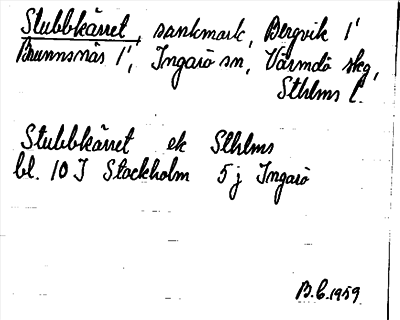 Stubbkärret, sankmark, Bergvik 1'
Brunnsnäs 1', Ingarö sn, Värmdö skg,
Sthlms l.
Stubbkärret ek Sthlms
bl. 10 I Stockholm 5 j Ingarö
B.C. 1959